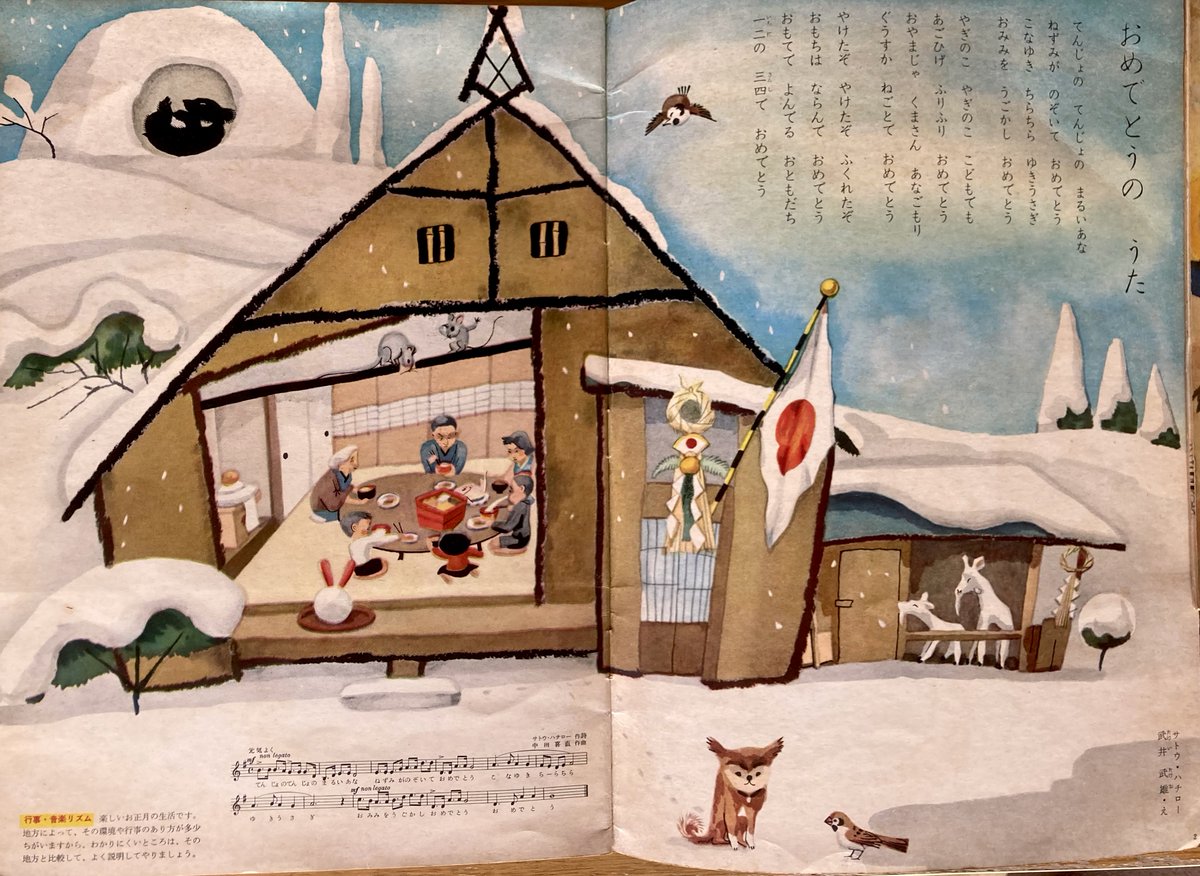 おめでとうの うた
てんじょの てんじょの まるいあな
ねずみが のぞいて おめでとう
こなゆき ちらちら ゆきうさぎ
おみみを うごかし おめでとう
やぎのこ やぎのこ こどもでも
あごひげ ふりふり おめでとう
おやまじゃ くまさん あなごもり
ぐうすか ねごとで おめでとう
やけたぞ やけたぞ ふくれたぞ
おもちは ならんで おめでとう
おもてで よんでる おともだち
一二の 三四で おめでとう
サトウ・ハチロー
武井 武雄・え
サトウ・ハチロー 作詩
中田喜直 作曲
元気よく
mf non legato
てん じょのてん じょの まるいあな ねずみ がのぞいて おめでとう こなゆき ちーらちら
mf non legato
ゆきうさぎ おみみをうごかし おめでとう おめでとう
行事・音楽リズム 楽しいお正月の生活です。
地方によって、その環境や行事のあり方が多少
ちがいますから、わかりにくいところは、その
地方と比較して、よく説明してやりましょう。